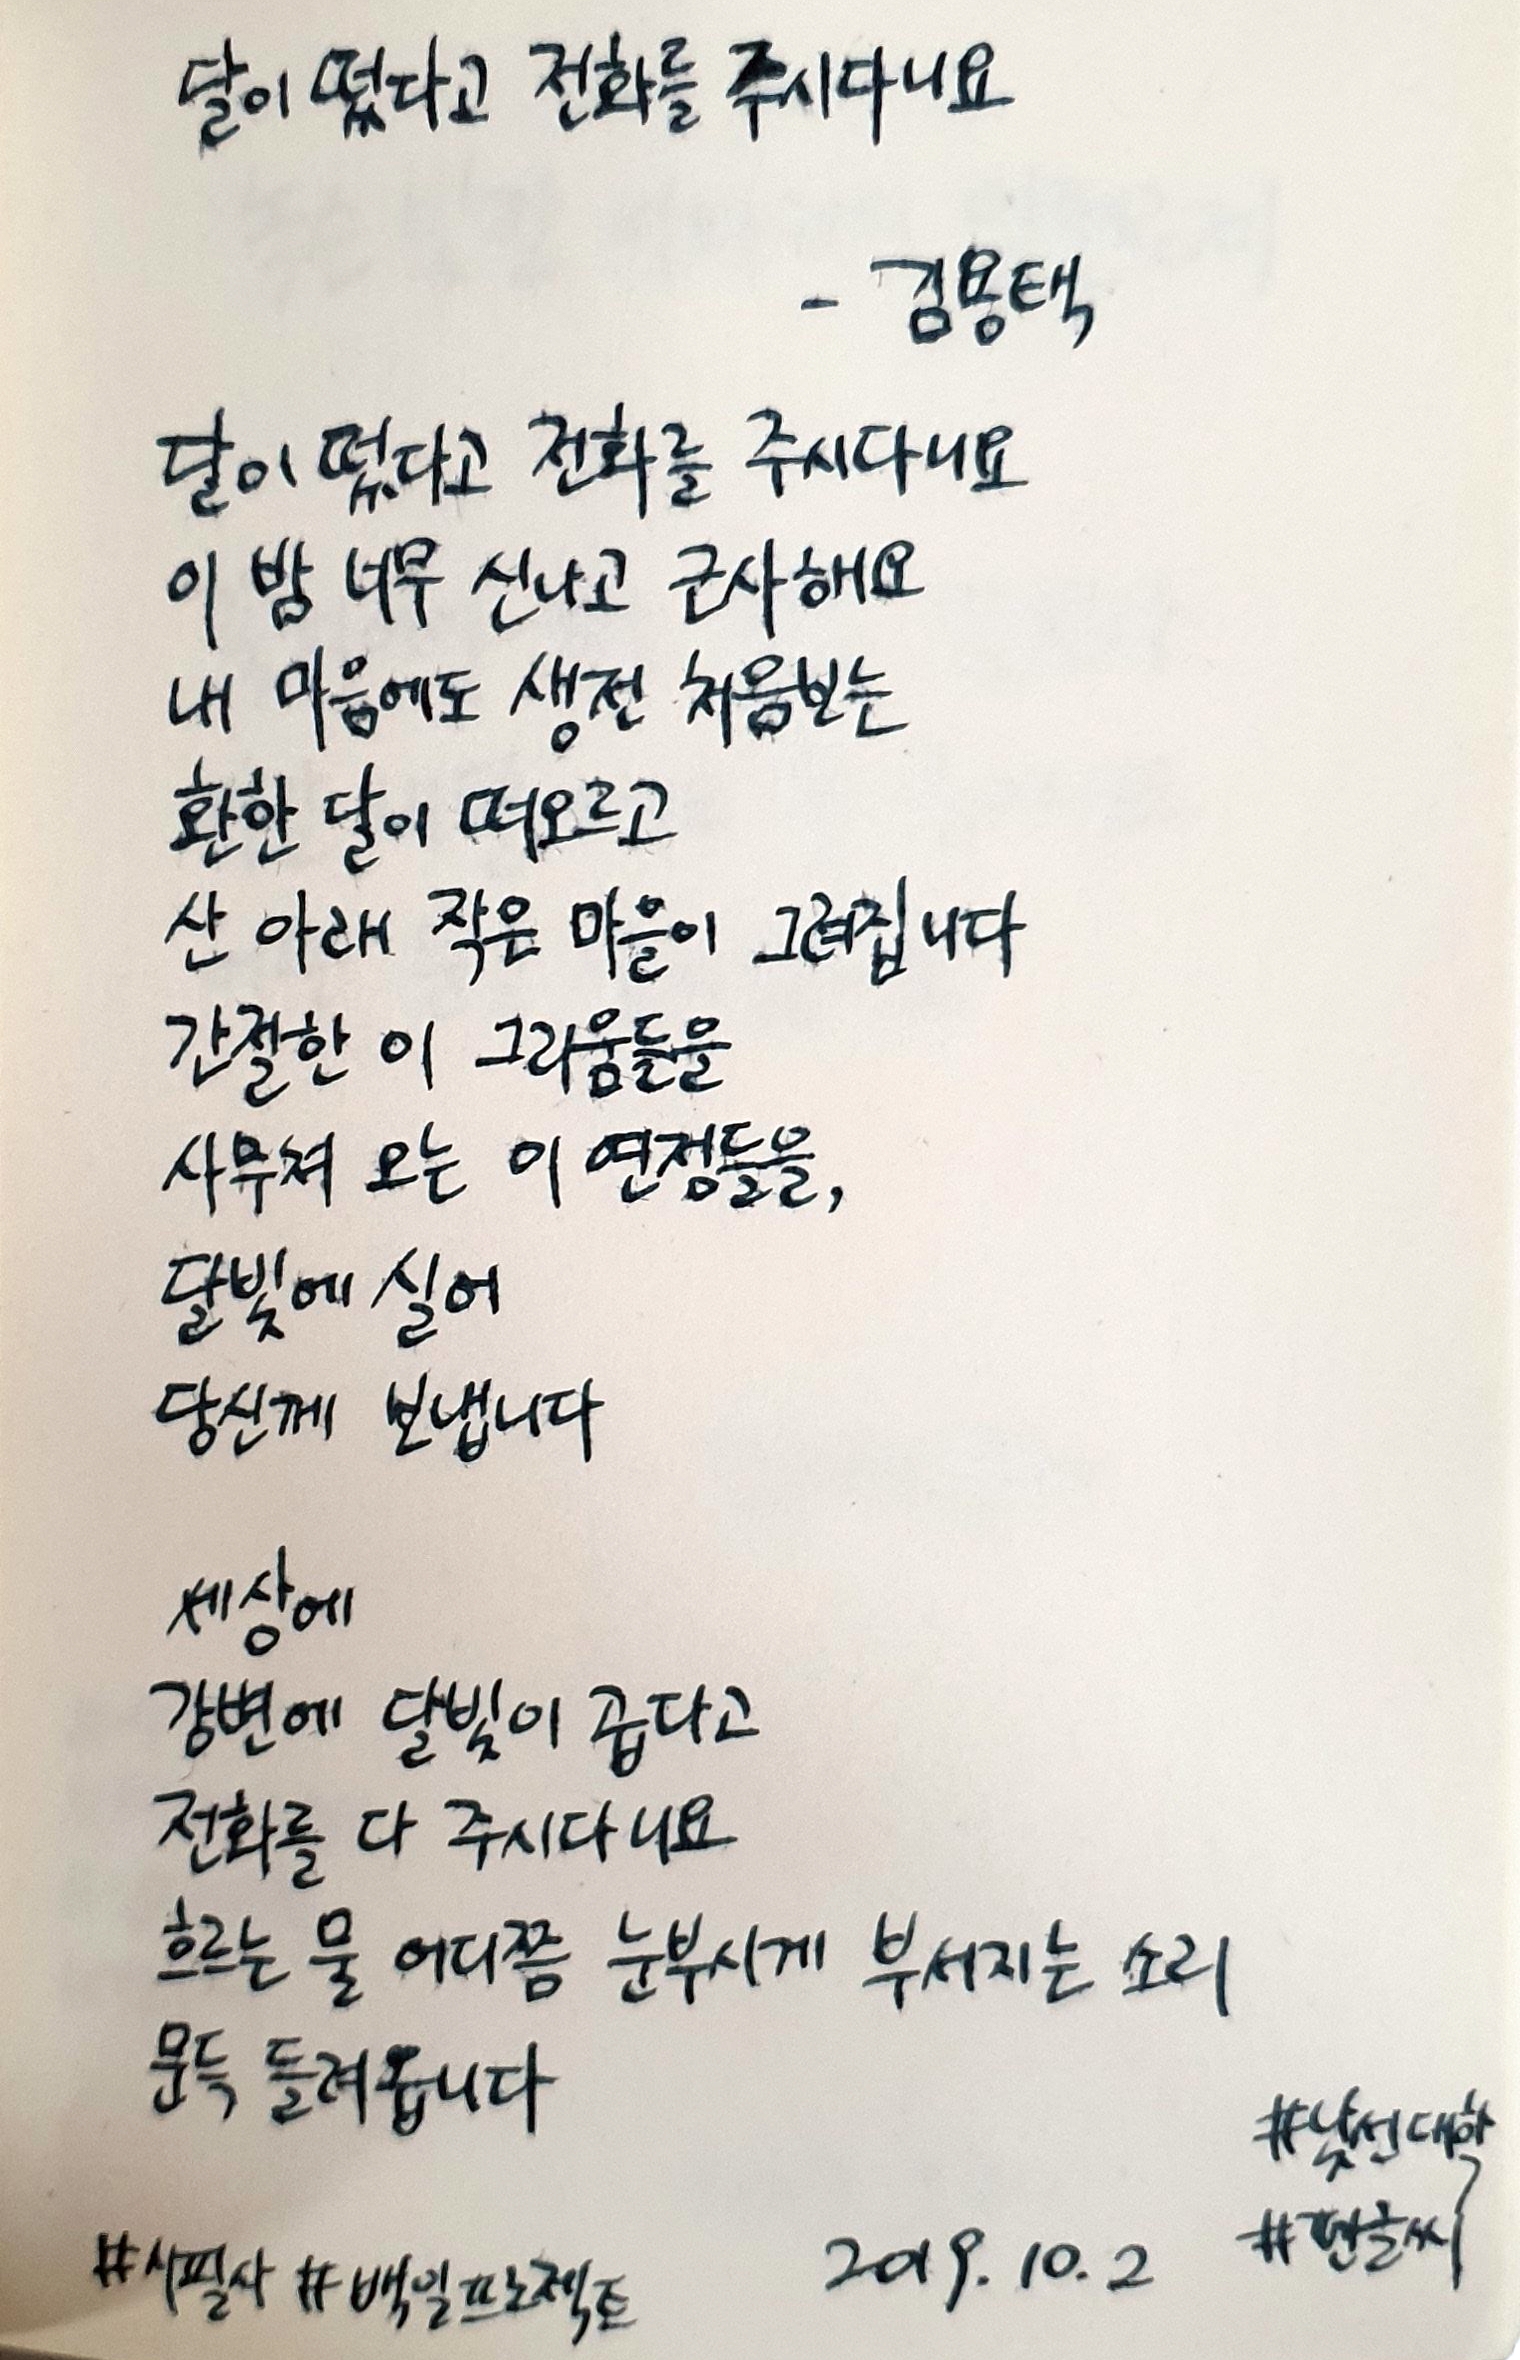 달이 떴다고 전화를 주시다니요
- 김용택
달이 떴다고 전화를 주시다니요
이 밤 너무 신나고 근사해요
내 마음에도 생전 처음보는
환한 달이 떠오르고
산 아래 작은 마을이 그려집니다
간절한 이 그리움들을
사무쳐 오는 이 연정들을,
달빛에 실어
당신께 보냅니다
세상에
강변에 달빛이 곱다고
전화를 다 주시다니요
흐르는 물 어디쯤 눈부시게 부서지는 소리
문득 들려옵니다
#낯선대학
#펜글씨
#시필사 #백일프로젝트 2019. 10. 2